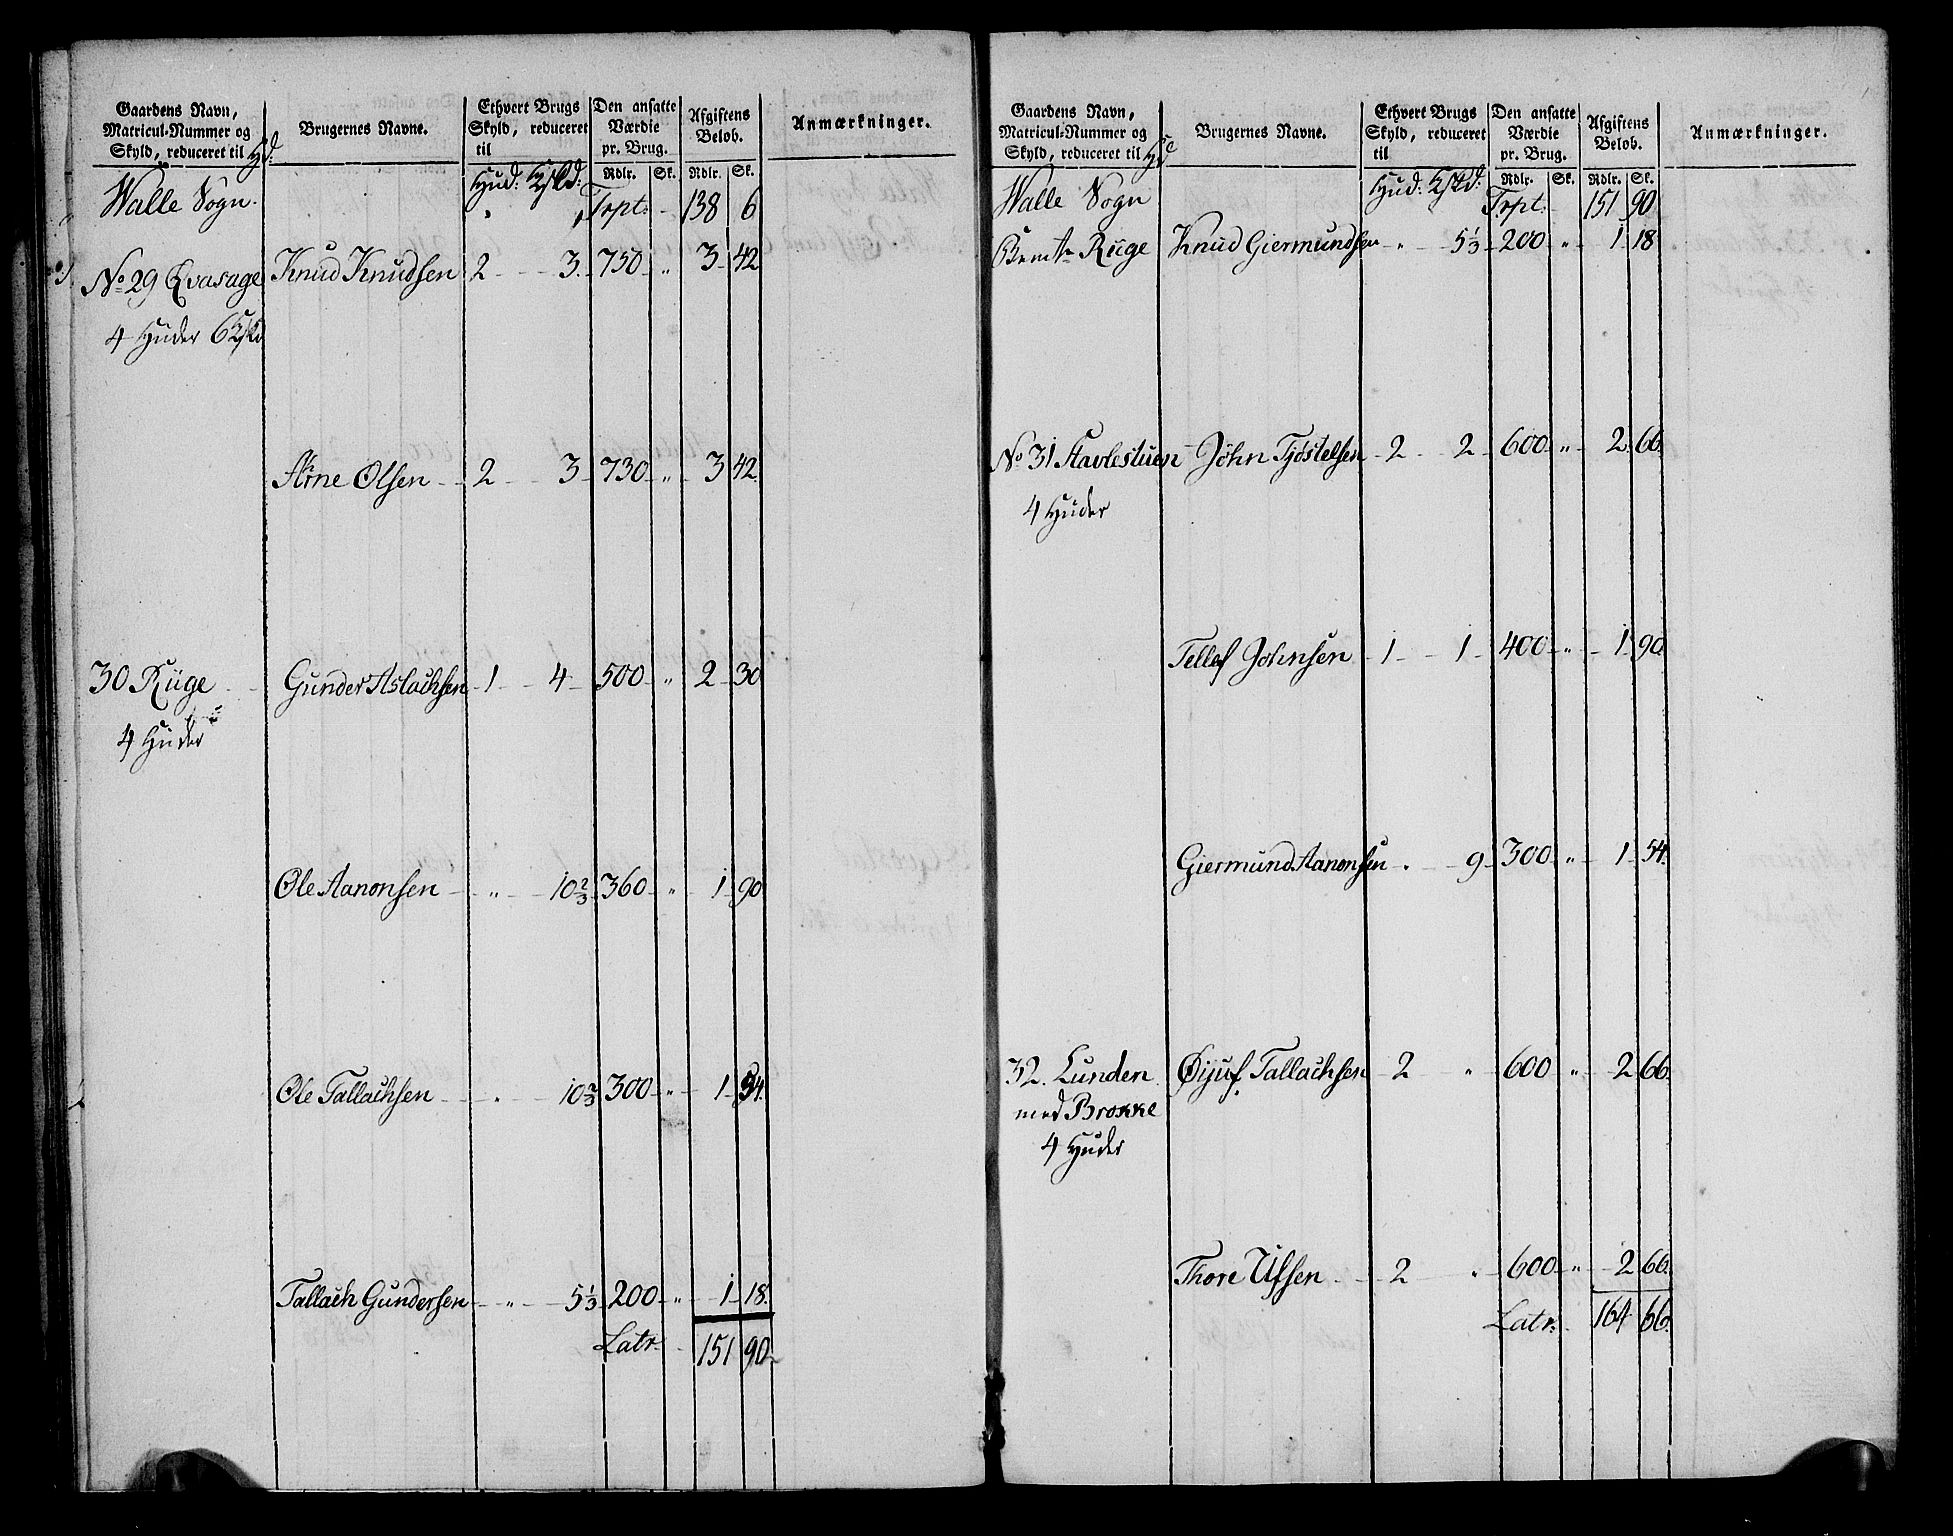 Gaardens Navn, Matricul-Nummer og Skyld, reduceret til Hd. | Brugernes Navne. | Ethvert Brugs Skyld, reduceret til | Den ansatte Værdie pr. Brug. | Afgiftens Beløb. | Anmærkninger.
Rdlr. Sk. Rdlr. Sk.
Walle Sogn. Hud: Skd: Trpt: 138 6
No 29 Qvasage Knud Knudsen 2 3 750 " 3 42
4 Huder 6 Skd
Arne Olsen 2 3 730 " 3 42
30 Ruge Gunder Aslachsen 1 4 500 " 2 30
4 Huder
Ole Aanonsen " 10 2/3 360 " 1 90
Ole Tallachsen " 10 2/3 300 " 1 54
Tallach Gundersen " 5 1/3 200 " 1 18
Latr. 151 90
Gaardens Navn, Matricul-Nummer og Skyld, reduceret til Hd | Brugernes Navne. | Ethvert Brugs Skyld, reduceret til | Den ansatte Værdie pr. Brug. | Afgiftens Beløb. | Anmærkninger.
Rdlr. Sk. Rdlr. Sk.
Walle Sogn Hud: Skd: Trpt: 151 90
Ruge Knud Giermundsen " 5 1/3 200 " 1 18
No 31 Stavlestuen John Tjøstelsen 2 2 600 " 2 66
4 Huder
Tellef Johnsen 1 1 400 " 1 90
Giermund Aanonsen " 9 300 " 1 54
32. Lunden Øijuf Tallachsen 2 " 600 " 2 66
med Brokke
4 Huder
Thore Ufsen 2 " 600 " 2 66
Latr: 164 66